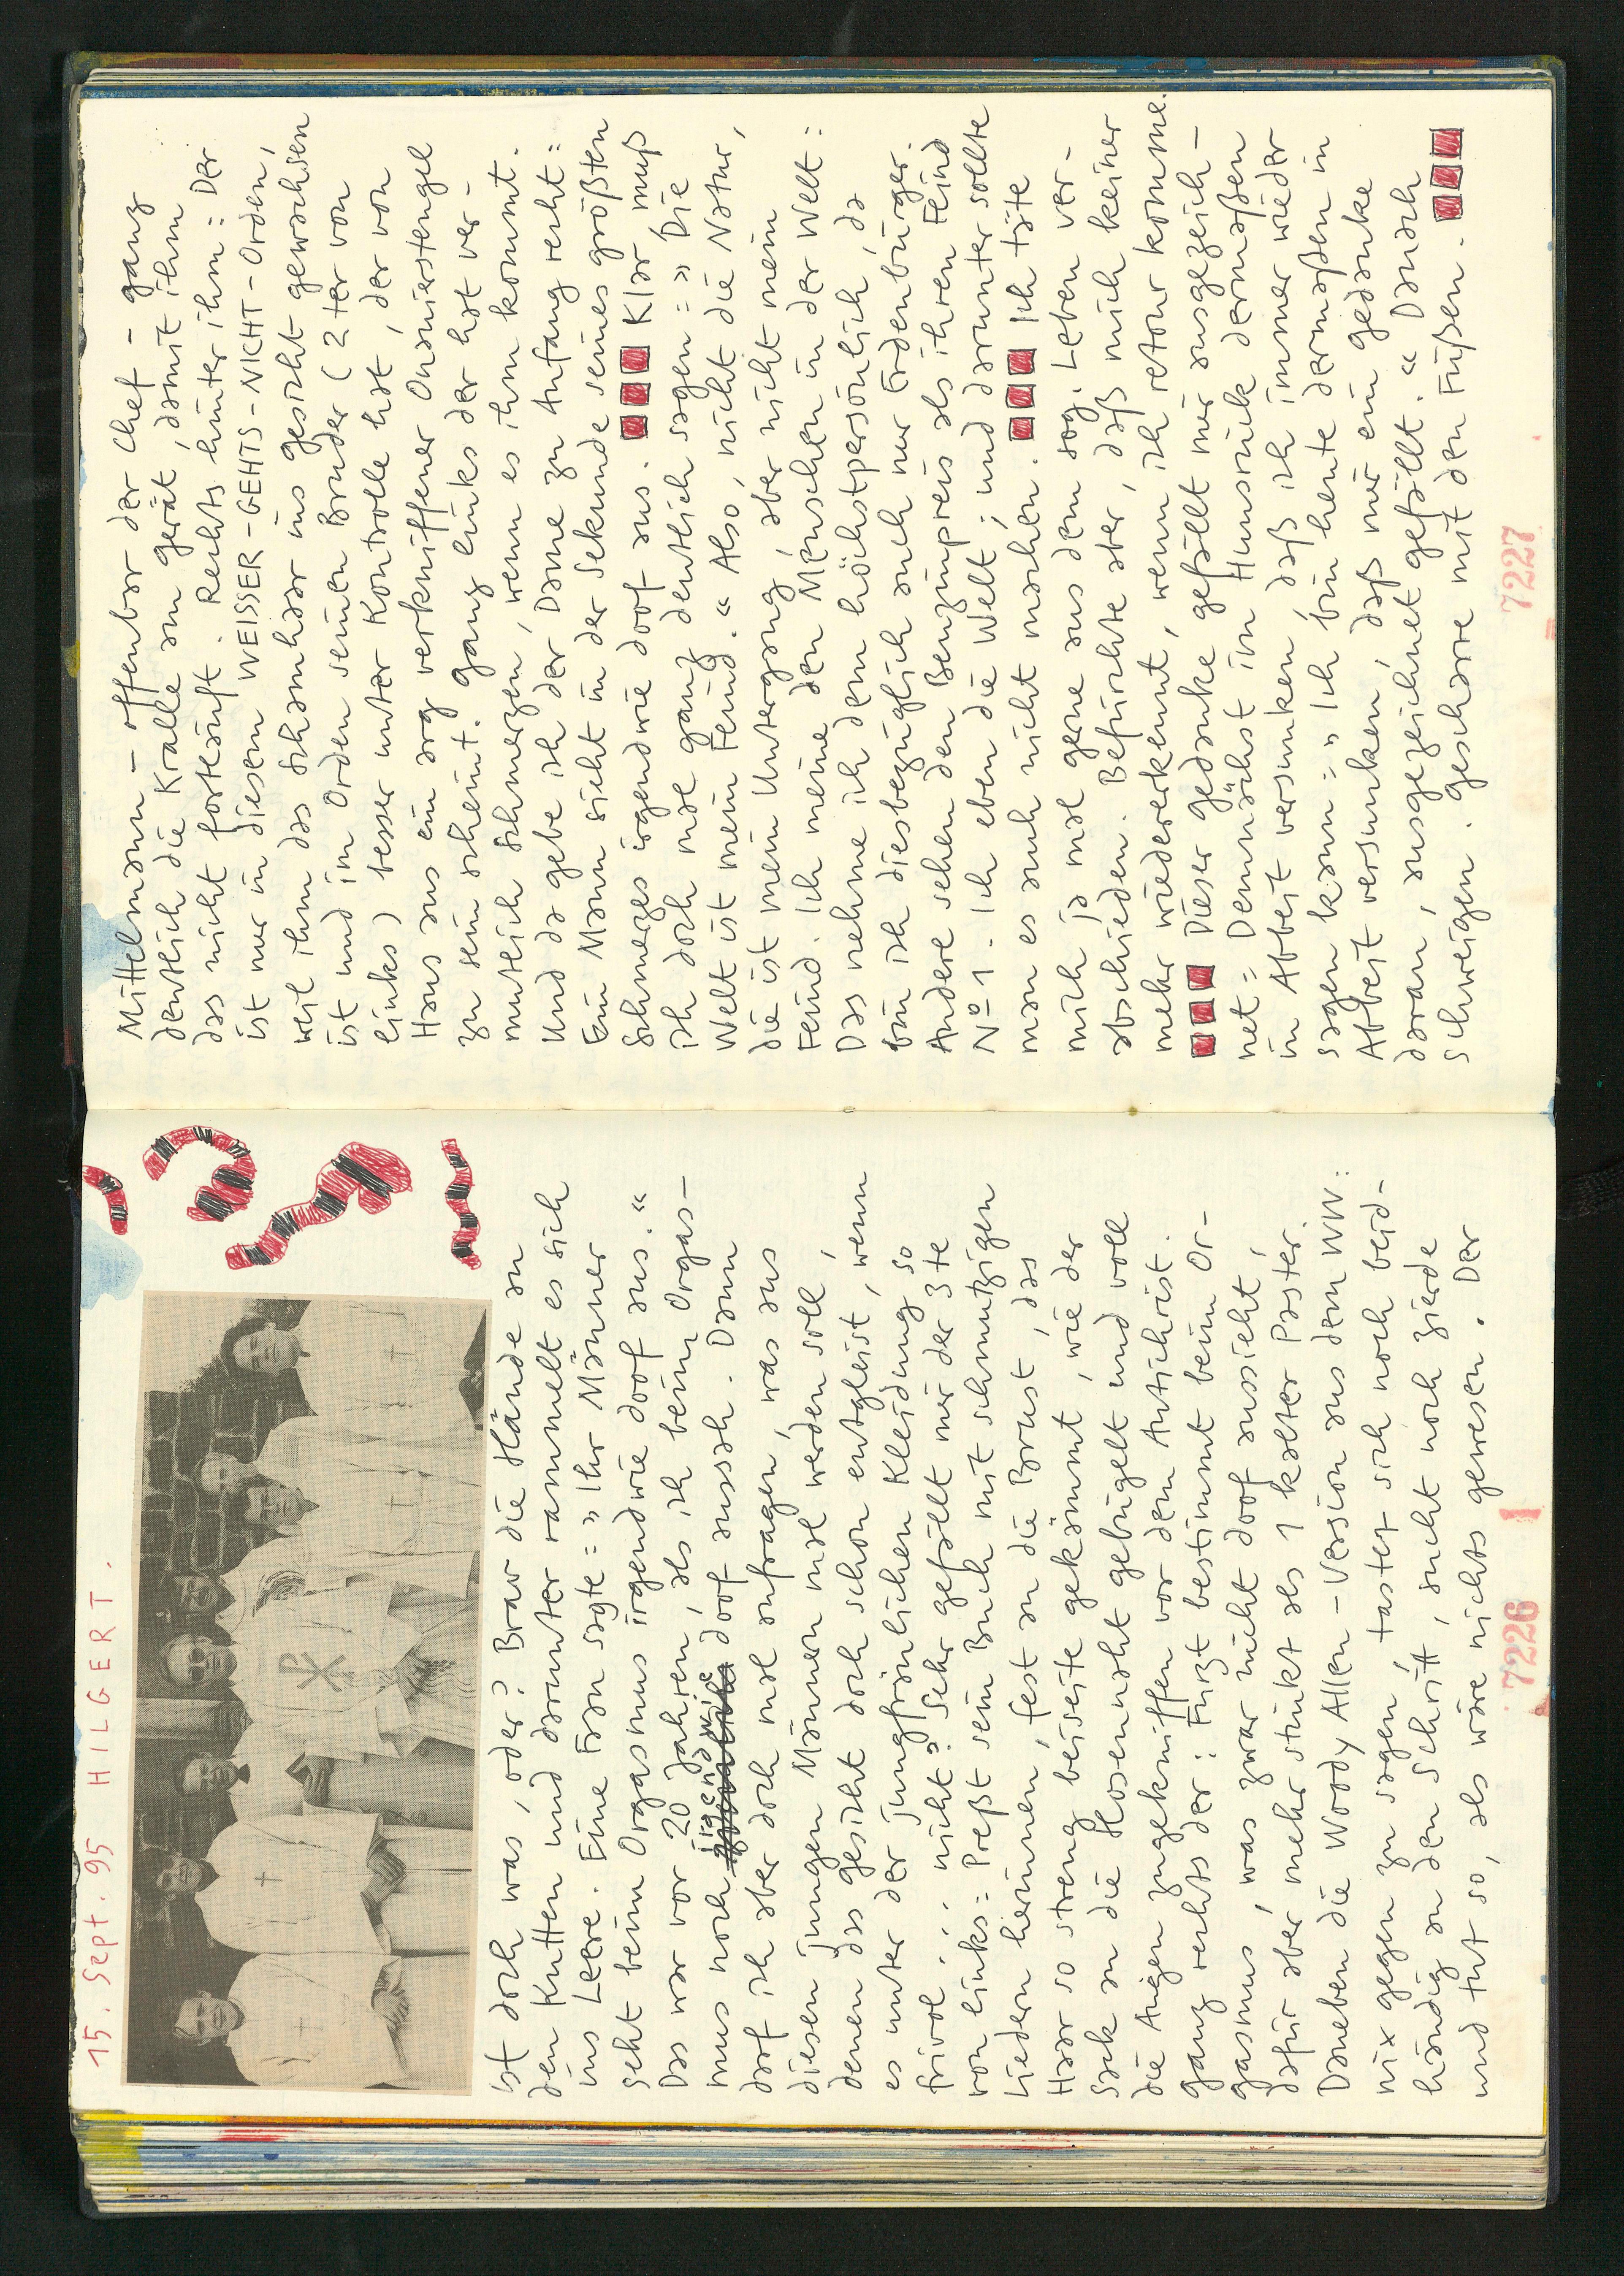 15. Sept. 95 HILGERT.
ist doch was, oder? Brav die Hände an
den Kutten und darunter rammelt es sich
ins Leere. Eine Frau sagte = "Ihr Männer
seht beim Orgasmus irgendwie doof aus."
Das war vor 20 Jahren, als ich beim Orgas-
mus noch irgendwie doof aussah. Dann
darf ich aber doch mal anfragen, was aus
diesen jungen Männern mal werden soll,
denen das Gesicht doch schon entgleist, wenn
es unter der jungfräulichen Kleidung so
frivol ... nicht? Sehr gefällt mir der 3te
von links = Preßt sein Buch mit schmutzigen
Liedern herinnen, fest an die Brust, das
Haar so streng beiseite gekämmt, wie der
Sack an die Hosennaht gebügelt und voll
die Augen zugekniffen vor dem Antichrist.
ganz rechts der: Furzt bestimmt beim Or-
gasmus, was zwar nicht doof aussieht,
dafür aber mehr stinkt als 1 kalter Paster.
Daneben die Woody Allen - Version aus dem WW:
nix gegen zu sagen, tastet sich noch beid-
händig an den Schritt, sucht noch Zierde
und tut so, als wäre nichts gewesen. Der
7226 1
Mittelmann - offenbar der Chef - ganz
deutlich die Kralle am Gerät, damit ihm
das nicht fortläuft. Rechts hinter ihm = Der
ist nur in diesem WEISSER-GEHTS-NICHT-Orden,
weil ihm das Schamhaar ins Gesicht gewachsen
ist und im Orden seinen Bruder (2ter von
links) besser unter Kontrolle hat, der von
Haus aus ein arg verkniffener Onanierstengel
zu sein scheint. Ganz links der hat ver-
mutlich Schmerzen, wenn es ihm kommt.
Und da gebe ich der Dame zu Anfang recht =
Ein Mann sieht in der Sekunde seines größten
Schmerzes irgendwie doof aus. Klar muß
ich doch mal ganz deutlich sagen = "Die
Welt ist mein Feind." Also, nicht die Natur,
die ist mein Untergang, aber nicht mein
Feind. Ich meine den Menschen in der Welt:
Das nehme ich dem höchstpersönlich, da
bin ich diesbezüglich auch nur Erdenbürger.
Andere sehen den Benzinpreis als ihren Feind
Nº 1. Ich eben die Welt; und darunter sollte
man es auch nicht machen. Ich täte
mich ja mal gerne aus dem sog. Leben ver-
abschieden. Befürchte aber, daß mich keiner
mehr wiedererkennt, wenn ich retour komme.
Dieser Gedanke gefällt mir ausgezeich-
net = Demnächst im Hunsrück dermaßen
in Arbeit versunken, daß ich immer wieder
sagen kann = "Ich bin heute dermaßen in
Arbeit versunken, daß mir ein Gedanke
daran, ausgezeichnet gefällt." Danach
schweigen. Gescharre mit den Füßen.
7227